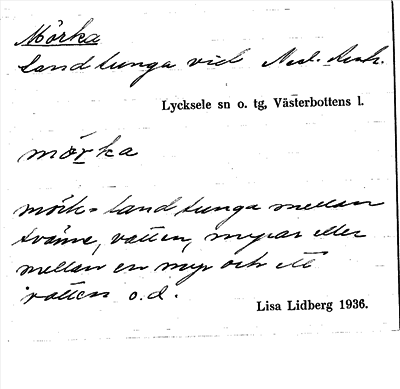 Mörka
Landtunga vid
Lycksele sn o. tg, Västerbottens l.
mörka
mörk = landtunga mellan
tvänne, vatten, myrar eller
mellan en myr och ett
vatten o.d.
Lisa Lidberg 1936.